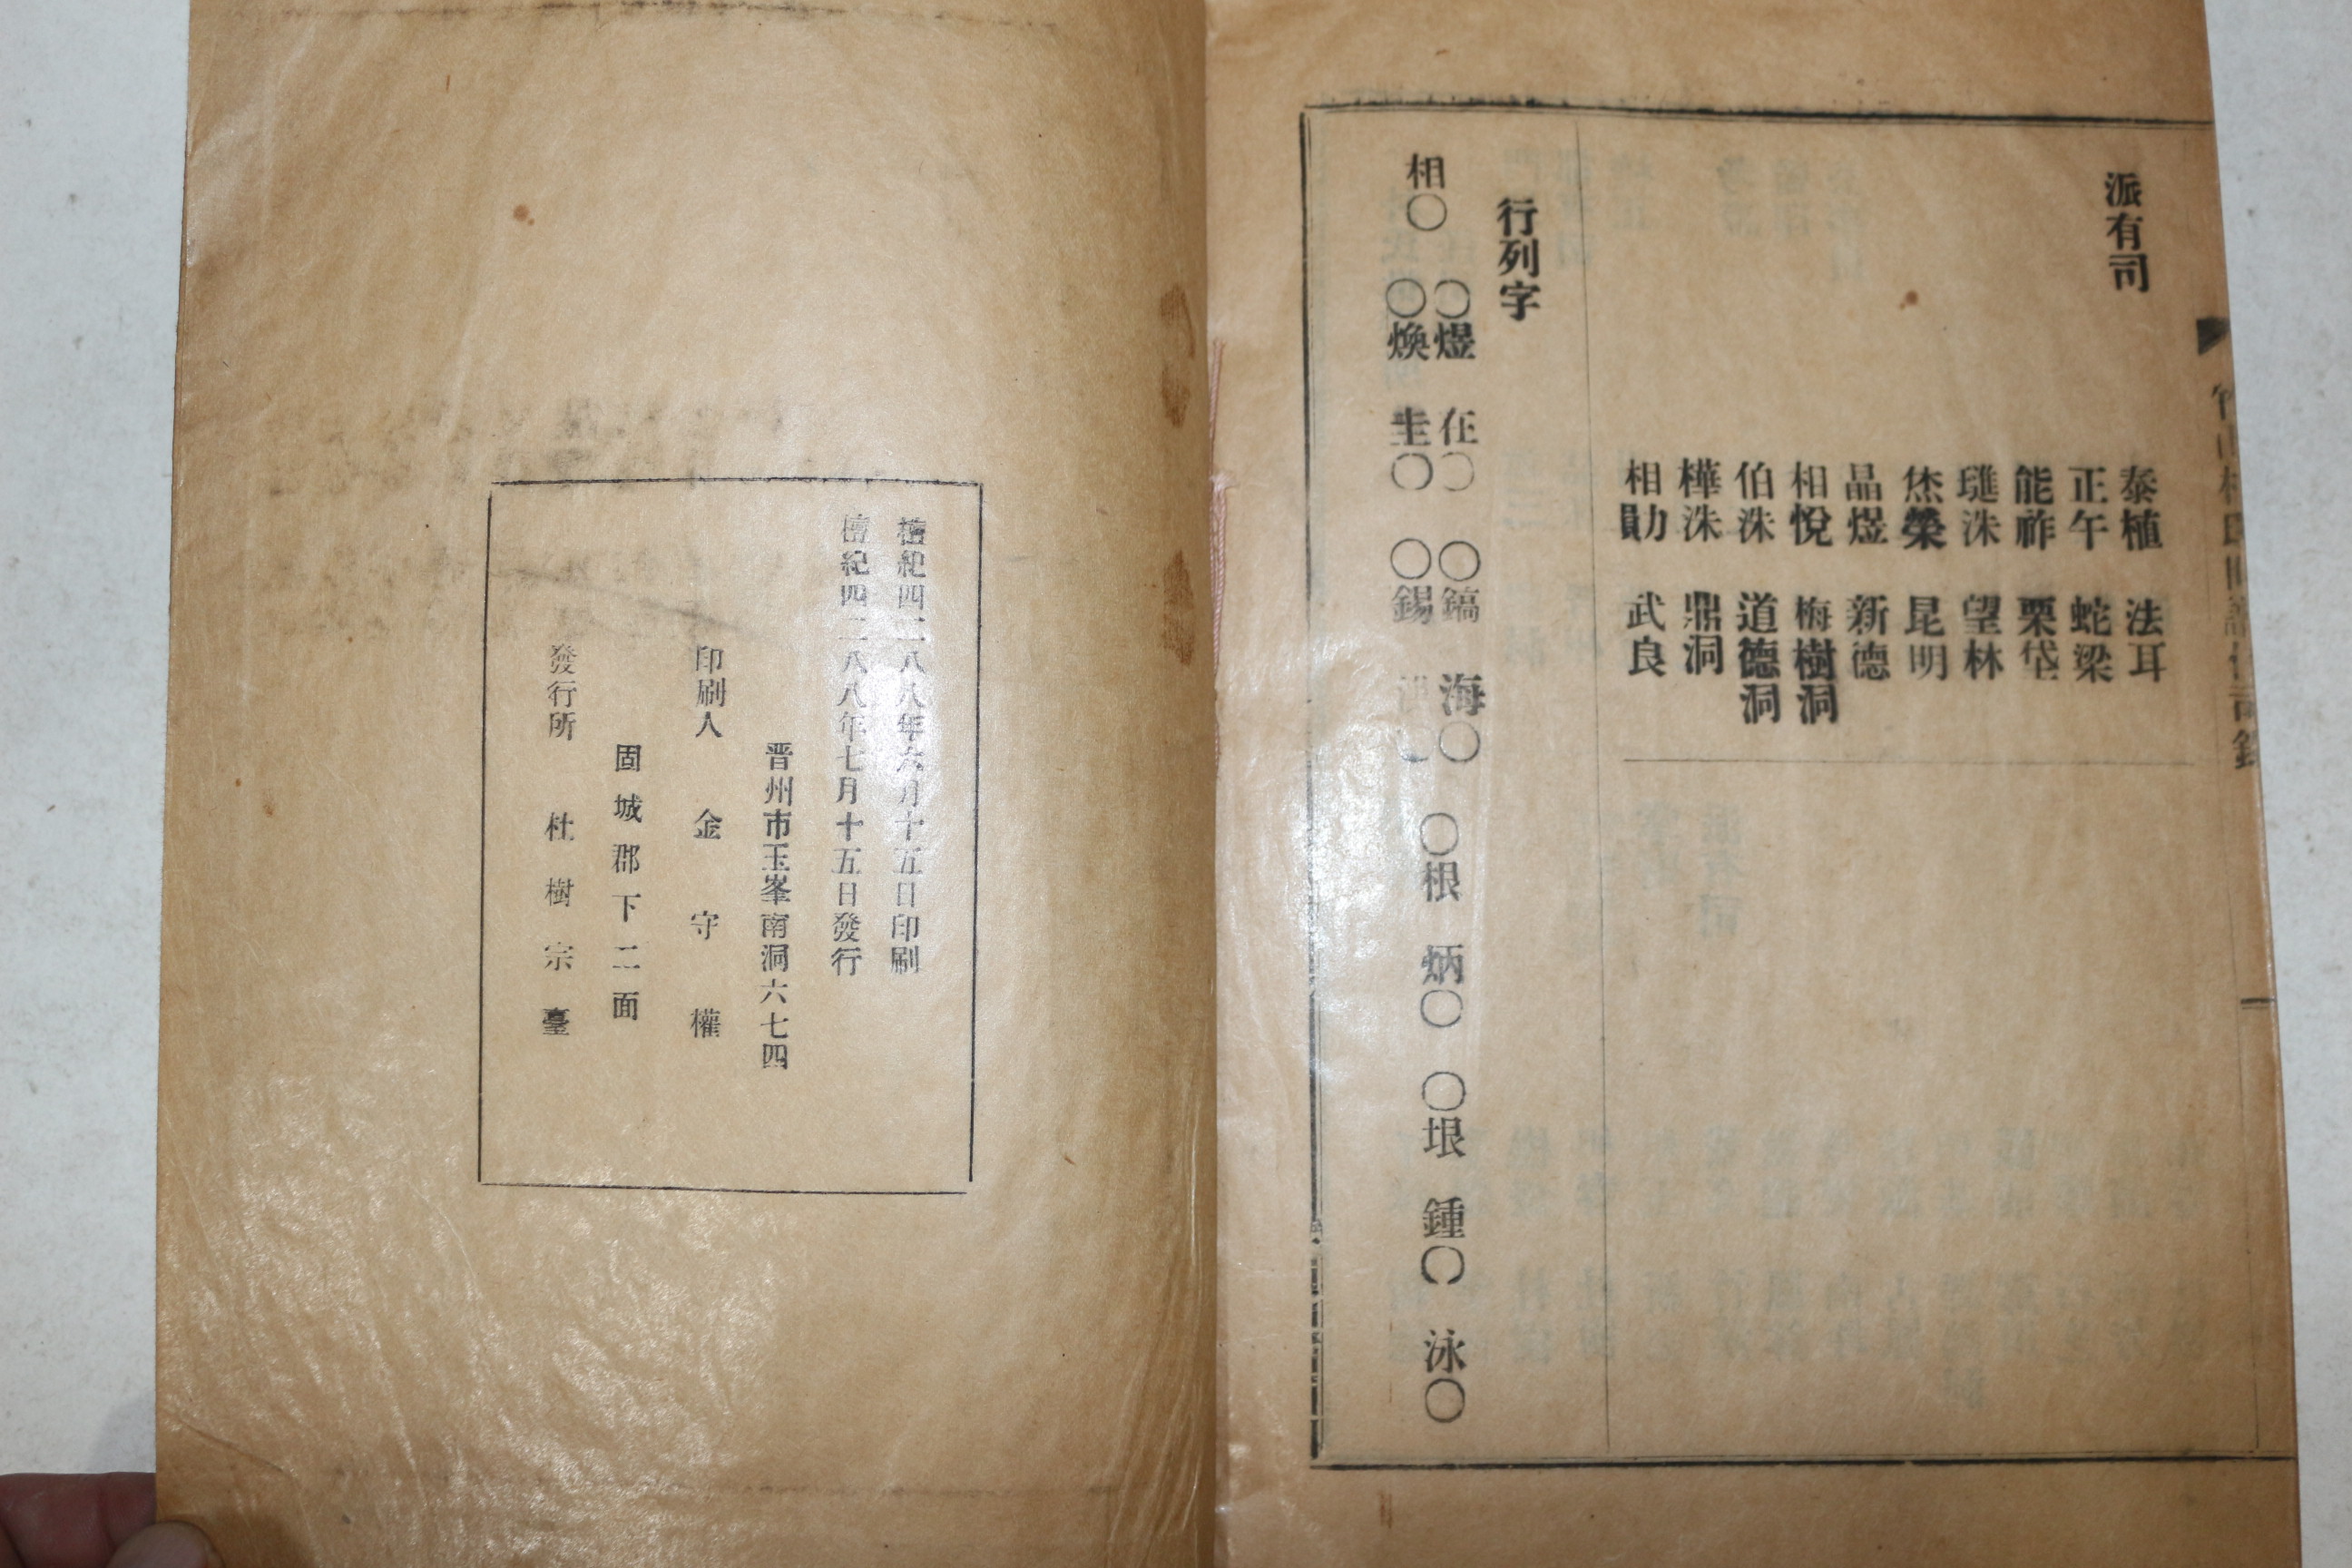 派有司
泰植 法耳
正午 蛇梁
能祚 栗垈
璡洙 望林
烋榮 昆明
晶煜 新德
相悅 梅樹洞
伯洙 道德洞
樺洙 鼎洞
相勛 武良
行列字
○煜 在○ ○鎬 海○
相○ ○根 炳○ ○垠 鍾○ 泳○
○煥 圭○ ○錫
檀紀四二八八年六月十五日印刷
檀紀四二八八年七月十五日發行
晋州市玉峯南洞六七四
印刷人 金守權
固城郡下二面
發行所 杜樹宗臺